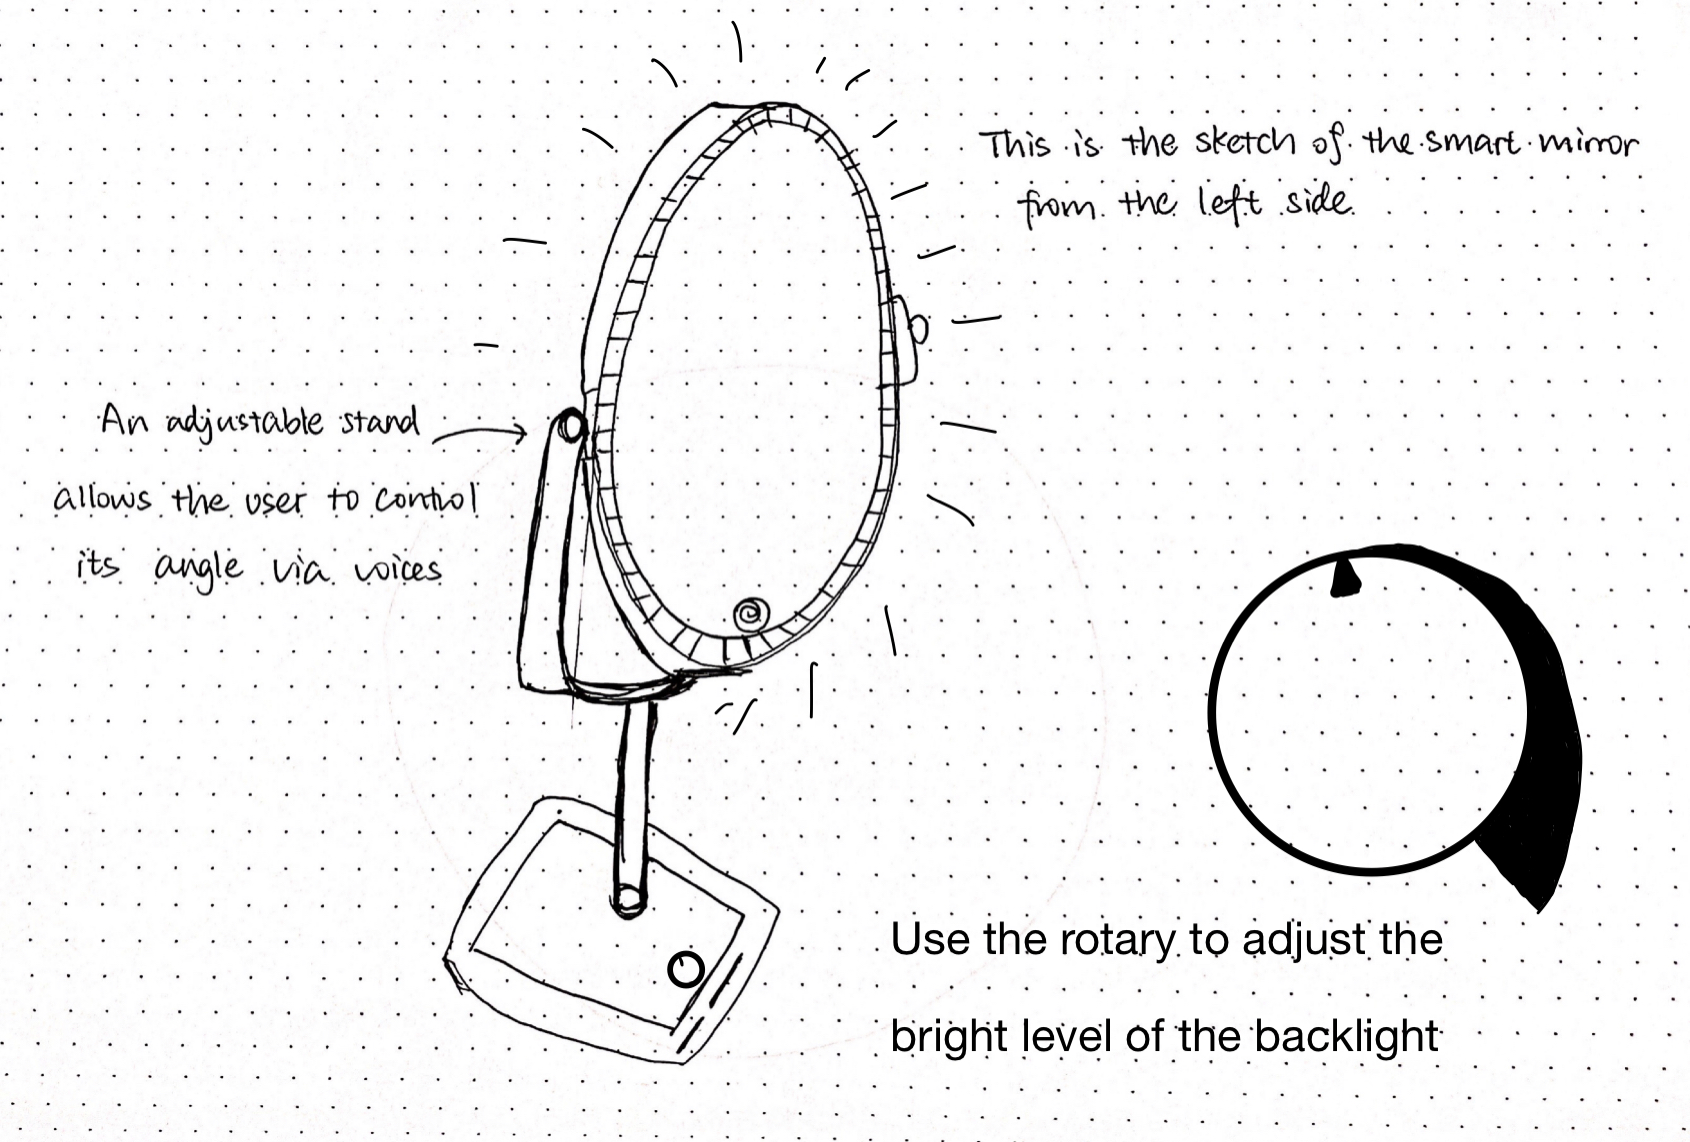 This is the sketch of the smart mirror
from the left side
An adjustable stand
allows the user to control
its angle via voices
Use the rotary to adjust the
bright level of the backlight